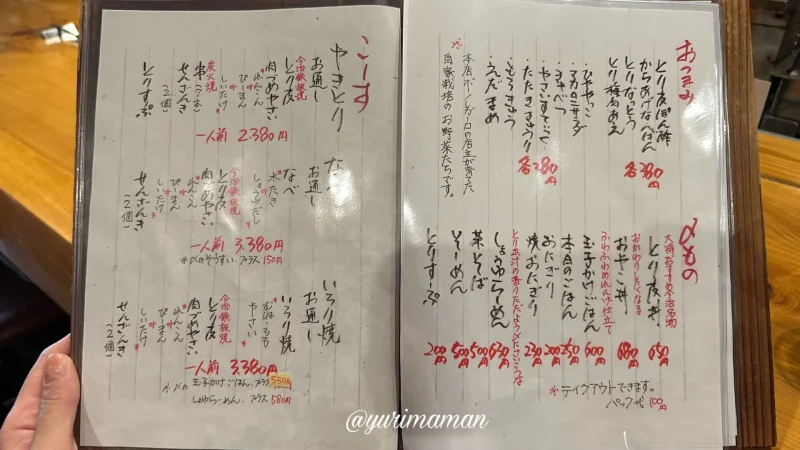 おつまみ
とり皮ぽん酢
からあげなんばん
とりなっとう
とり梅肉あえ
各380円
ひややっこ
マカロニサラダ
キャベツ
やさいすてぃっく
たたききゅうり
もろきゅう
えだまめ
各280円
自家栽培のお野菜たちです。
〆もの
大将おすすめ今治名物
とり皮丼
650円
おかわりしたくなる
おやこ丼
680円
ふわふわめれんげ仕立て
玉子かけごはん
600円
本日のごはん
250円
おにぎり
200円
焼おにぎり
230円
しょうゆらーめん
630円
茶そば
500円
そーめん
500円
とりすーぷ
200円
※テイクアウトできます。
パック代100円
こーす
やきとり
お通し
今治鉄板焼
とり皮
肉づめやさい
れんこん
ぴーまん
しいたけ
炭火焼
串(2本)
せんざんき
(2個)
とりすーぷ
一人前 2.380円
なべ
お通し
なべ
水たき
しょうゆだし
今治鉄板焼
とり皮
肉づめやさい
れんこん
ぴーまん
しいたけ
せんざんき
(2個)
一人前 3.380円
※〆のぞうすい、プラス150円
いろり焼
お通し
いろり焼
むね・もも
やさい
今治鉄板焼
とり皮
肉づめやさい
れんこん
ぴーまん
しいたけ
せんざんき
(2個)
一人前 3.380円
※〆の
玉子かけごはん、プラス550円
しょうゆらーめん、プラス580円
@yurimaman